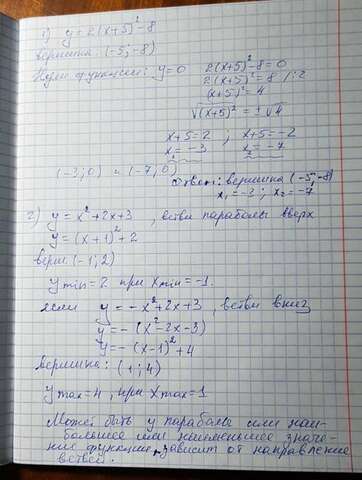 1) y = 2(x+5)² - 8
вершина (-5; -8)
Нули функции: y=0
2(x+5)² - 8 = 0
2(x+5)² = 8 /:2
(x+5)² = 4
√(x+5)² = ±√4
x+5=2 ; x+5=-2
x₁ = -3 x₂ = -7
(-3; 0) и (-7; 0)
Ответ: вершина (-5; -8)
x₁ = -3 ; x₂ = -7
2) y = x² + 2x + 3 , ветви параболы вверх
y = (x+1)² + 2
верш (-1; 2)
y min = 2 при x min = -1.
если y = -x² + 2x + 3 , ветви вниз
y = -(x² - 2x - 3)
y = -(x-1)² + 4
вершина: (1; 4)
y max = 4, при x max = 1
Может быть у параболы или наи-
большее или наименьшее значе-
ние функции, зависит от направления
ветвей.